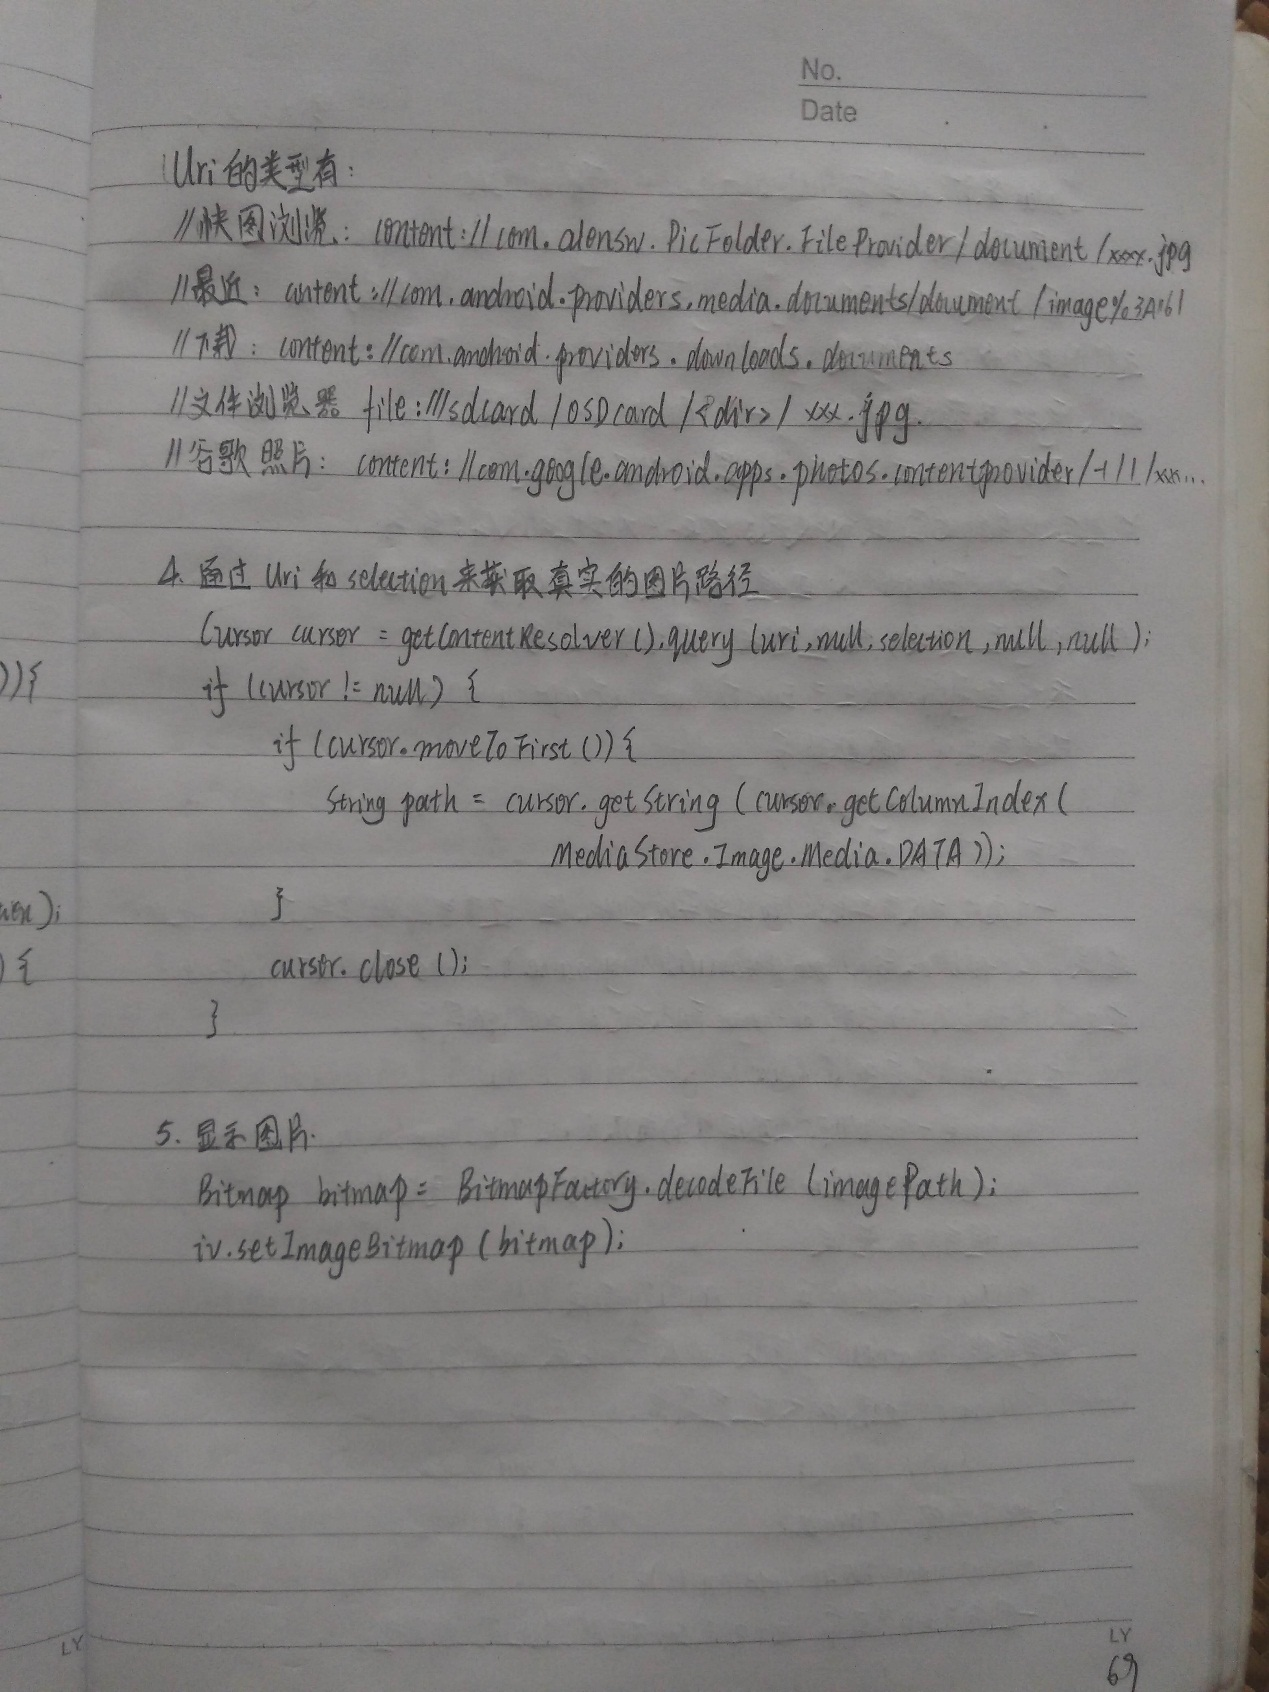 No.
Date
Uri的类型有:
//快图浏览: content://com.alensw.PicFolder.FileProvider/document/xxxx.jpg
//最近: content://com.android.providers.media.documents/document/image%3A
//下载: content://com.android.providers.downloads.documents
//文件浏览器 file:///sdcard/OSDcard/<dir>/xxx.jpg.
//谷歌照片: content://com.google.android.apps.photos.contentprovider/-1/1/xx...
4. 通过Uri和selection来获取真实的图片路径
Cursor cursor = getContentResolver().query(uri,null,selection,null,null);
)){
if (cursor != null) {
if (cursor.moveToFirst()){
String path = cursor.getString(cursor.getColumnIndex(
MediaStore.Image.Media.DATA));
);
}
) {
cursor.close();
}
5. 显示图片.
Bitmap bitmap = BitmapFactory.decodeFile(imagePath);
iv.setImageBitmap(bitmap);
LY
LY
69